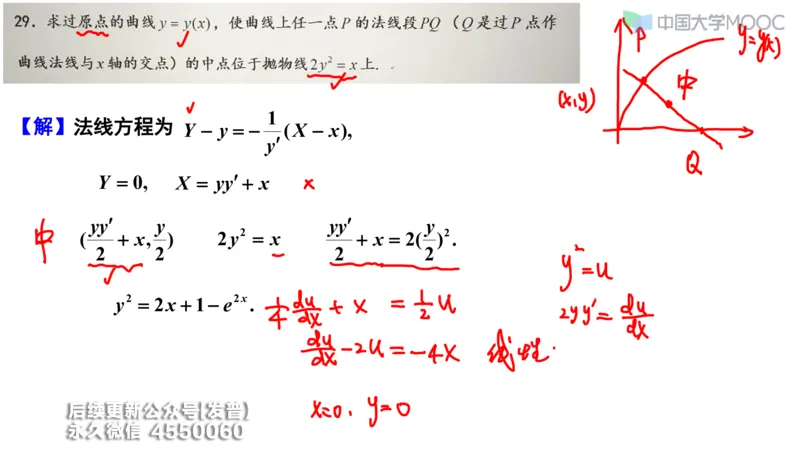 29. 求过原点的曲线 y = y(x)，使曲线上任一点 P 的法线段 PQ（Q 是过 P 点作
曲线法线与 x 轴的交点）的中点位于抛物线 2y² = x 上.
中国大学MOOC
P
y=y(x)
(x,y)
中
Q
【解】法线方程为 Y − y = −1/y′ (X − x),
Y = 0, X = yy′ + x
x
中
(yy′/2 + x, y/2) 2y² = x yy′/2 + x = 2(y/2)².
y² = 2x + 1 − e²ˣ.
y²=u
2yy′ = du/dx
1/4 du/dx + x = 1/2 u
du/dx − 2u = −4x 线性.
x=0, y=0
后续更新公众号(发普)
永久微信 4550060